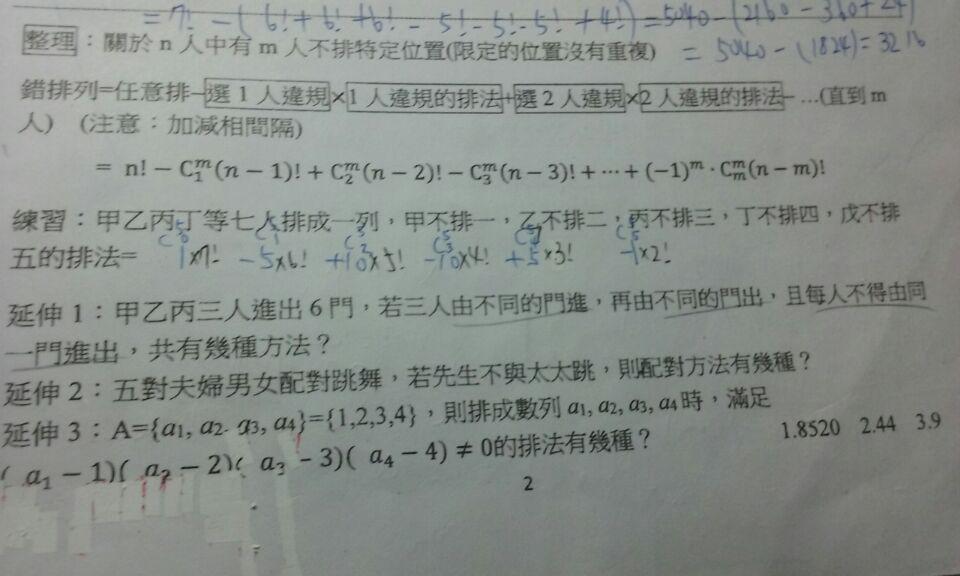 = 7! - (6! + 6! + 6! - 5! - 5! - 5! + 4!) = 5040 - (2160 - 360 + 24)
整理：關於 n 人中有 m 人不排特定位置(限定的位置沒有重複)
= 5040 - (1824) = 3216
錯排列=任意排−選 1 人違規×1 人違規的排法+選 2 人違規×2 人違規的排法− …(直到 m
人) (注意：加減相間隔)
= n! − C₁ᵐ(n − 1)! + C₂ᵐ(n − 2)! − C₃ᵐ(n − 3)! + ⋯ + (−1)ᵐ · Cₘᵐ(n − m)!
練習：甲乙丙丁等七人排成一列，甲不排一，乙不排二，丙不排三，丁不排四，戊不排
五的排法= 1×7! −5×6! +10×5! −10×4! +5×3! −1×2!
延伸 1：甲乙丙三人進出 6 門，若三人由不同的門進，再由不同的門出，且每人不得由同
一門進出，共有幾種方法？
延伸 2：五對夫婦男女配對跳舞，若先生不與太太跳，則配對方法有幾種？
延伸 3：A={a₁, a₂. a₃, a₄}={1,2,3,4}，則排成數列 a₁, a₂, a₃, a₄ 時，滿足
( a₁ − 1)( a₂ − 2)( a₃ − 3)( a₄ − 4) ≠ 0的排法有幾種？
1.8520 2.44 3.9
2